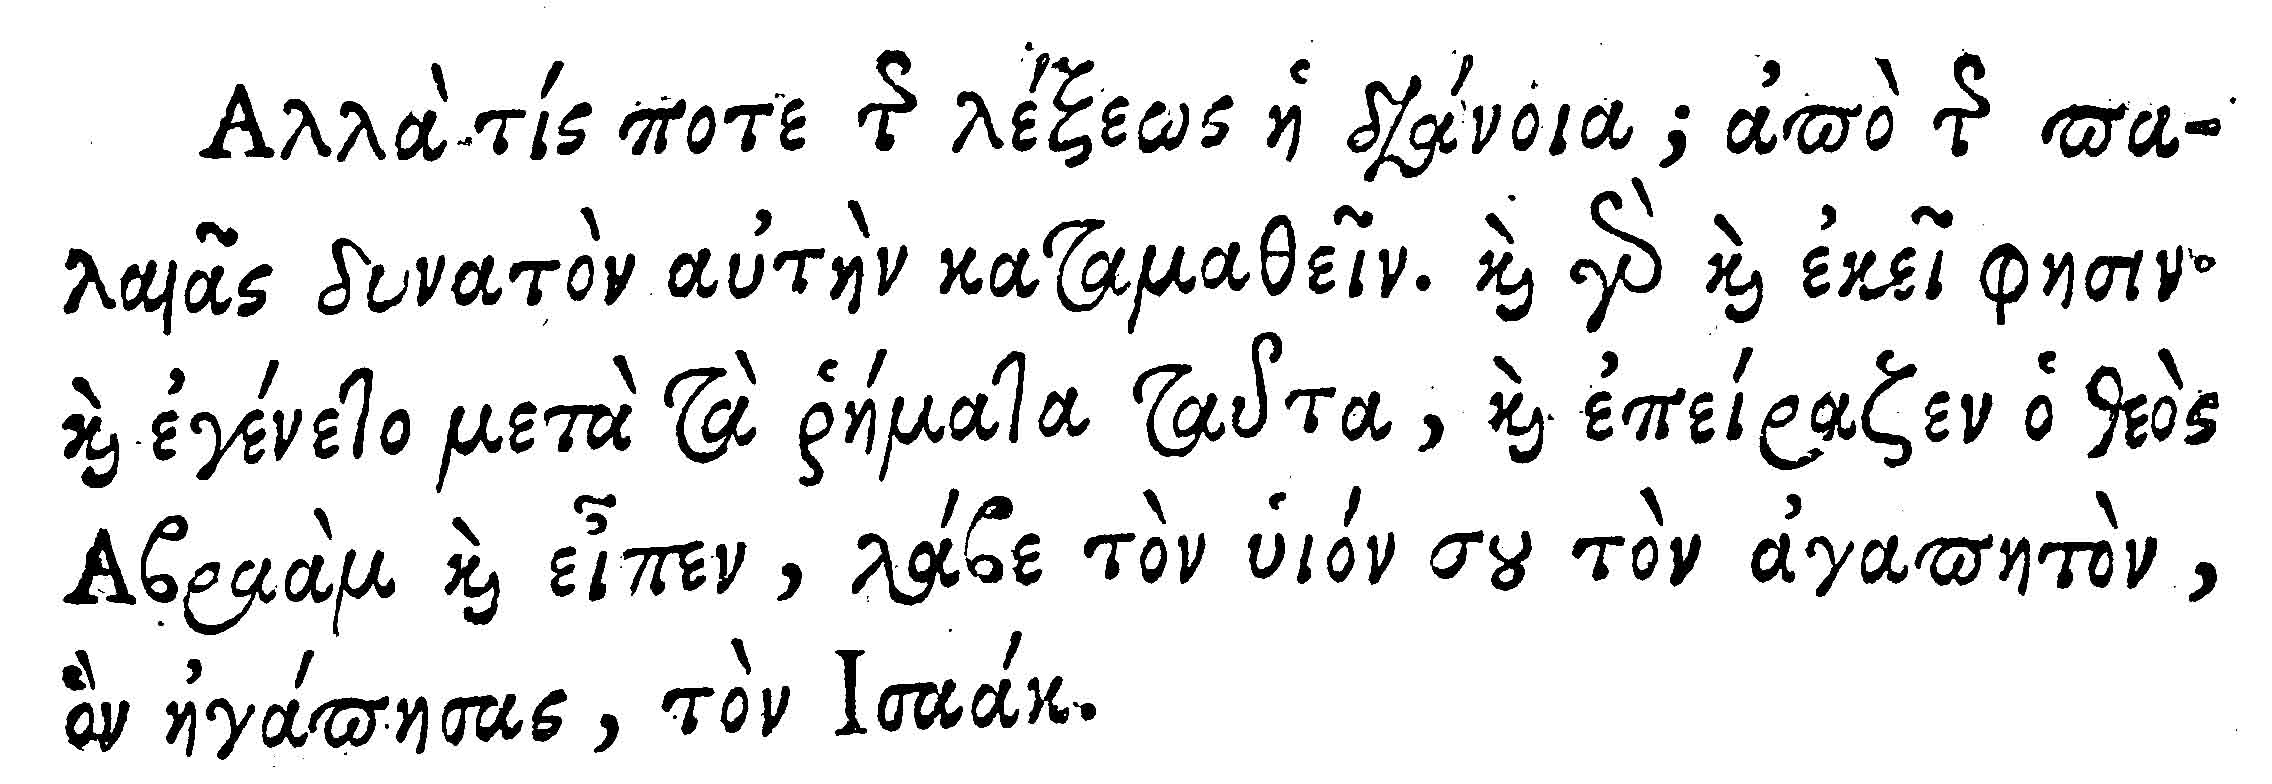 Αλλὰ τίς ποτε τῆς λέξεως ἡ διάνοια; ἀπὸ τῆς πα-
λαιᾶς δυνατὸν αὐτὴν καταμαθεῖν. καὶ γὰρ καὶ ἐκεῖ φησιν·
καὶ ἐγένετο μετὰ τὰ ῥήματα ταῦτα, καὶ ἐπείραζεν ὁ θεὸς
Αβραὰμ καὶ εἶπεν, λάβε τὸν ὑιόν σου τὸν ἀγαπητὸν,
ὃν ἠγάπησας, τὸν Ισαάκ.